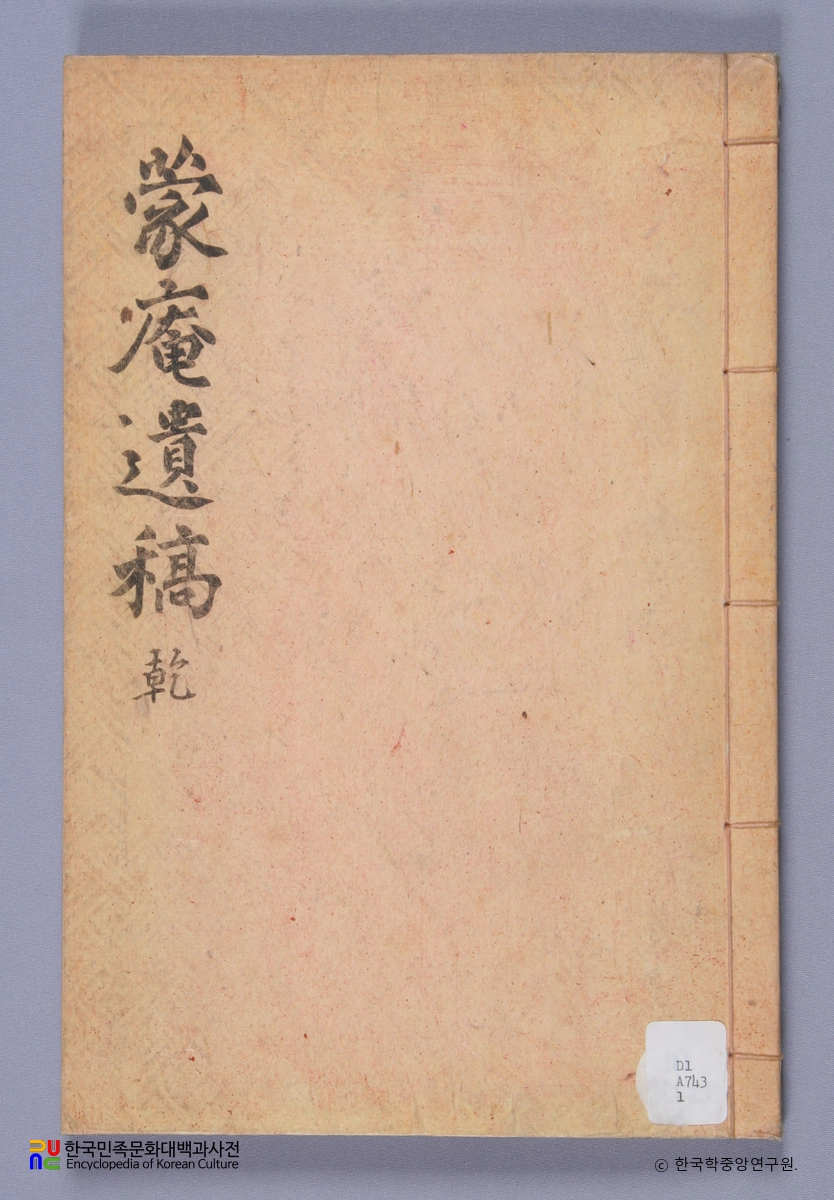 蒙庵遺稿 乾
D1
A743
1
한국민족문화대백과사전
Encyclopedia of Korean Culture
© 한국학중앙연구원.